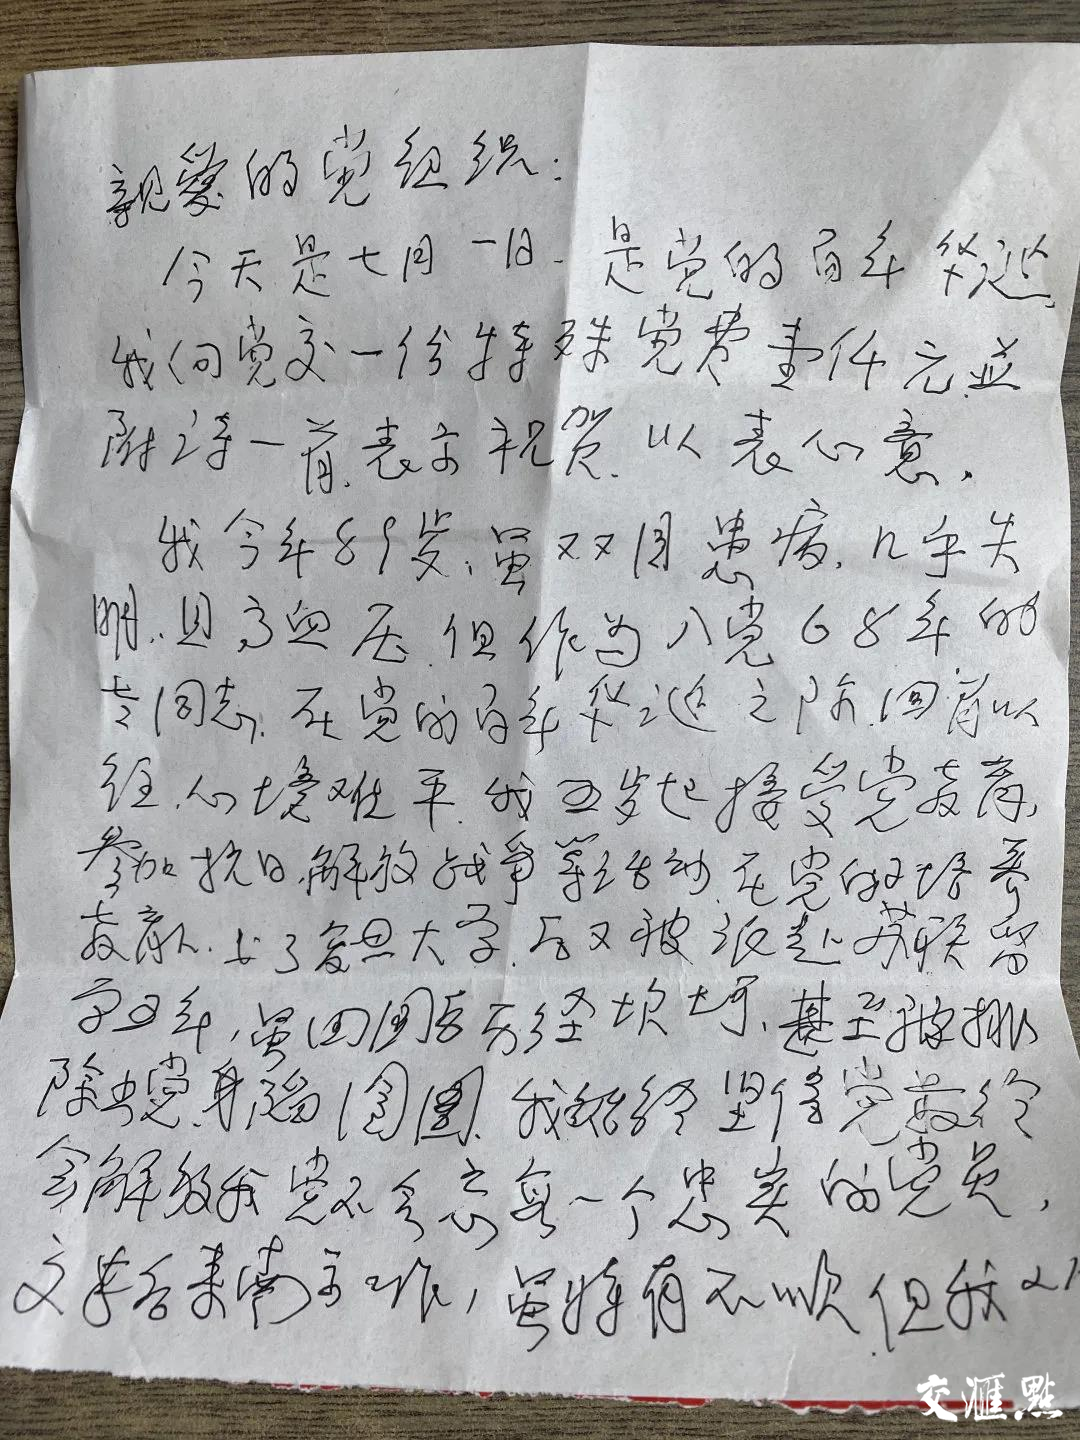 亲爱的党组织：
今天是七月一日，是党的百年华诞，
我向党交一份特殊党费壹仟元，並
附诗一首，表示祝贺，以表心意，
我今年89岁，虽双目患病，几乎失
明，且高血压，但作为入党68年的
老同志，在党的百年华诞之际，回首以
往，心境难平，我五岁起接受党教育，
参加抗日、解放战争等活动，在党的培养
教育，上了复旦大学，后又被派赴苏联留
学五年，虽回国后历经坎坷，甚至被排
除出党，身陷囹圄，我始终坚信党最终
会解放我，党不会忘每一个忠诚的党员，
文革后来南京工作，虽时有不顺，但我
交汇點